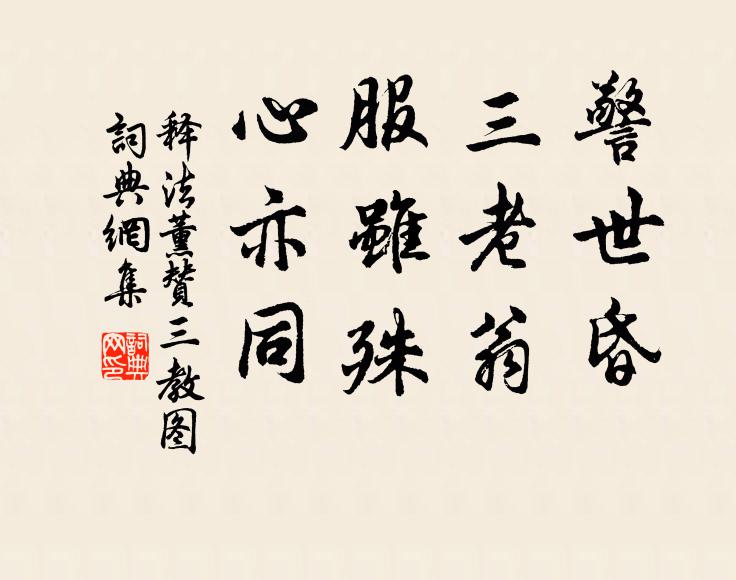 警世昏
三老翁
服雖殊
心亦同
释法薰赞三教图
詞典網集
詞典网印